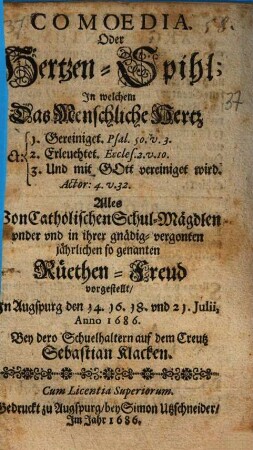 COMOEDIA.
Oder
Hertzen-Spihl;
In welchem
Das Menschliche Hertz
1. Gereiniget. Psal. 50. v. 3.
2. Erleuchtet. Eccles. 2. v. 10.
3. Und mit GOtt vereiniget wird.
Actor: 4. v. 32.
Alles
Von Catholischen Schul-Mägdlen
vnder vnd in ihrer gnädig-vergonten
jährlichen so genanten
Rüethen-Freud
vorgestellt/
In Augspurg den 14. 16. 18. vnd 21. Julii,
Anno 1686.
Bey dero Schuelhaltern auf dem Creutz
Sebastian Klacken.
Cum Licentia Superiorum.
Gedruckt zu Augspurg/bey Simon Utzschneider/
Im Jahr 1686.
37